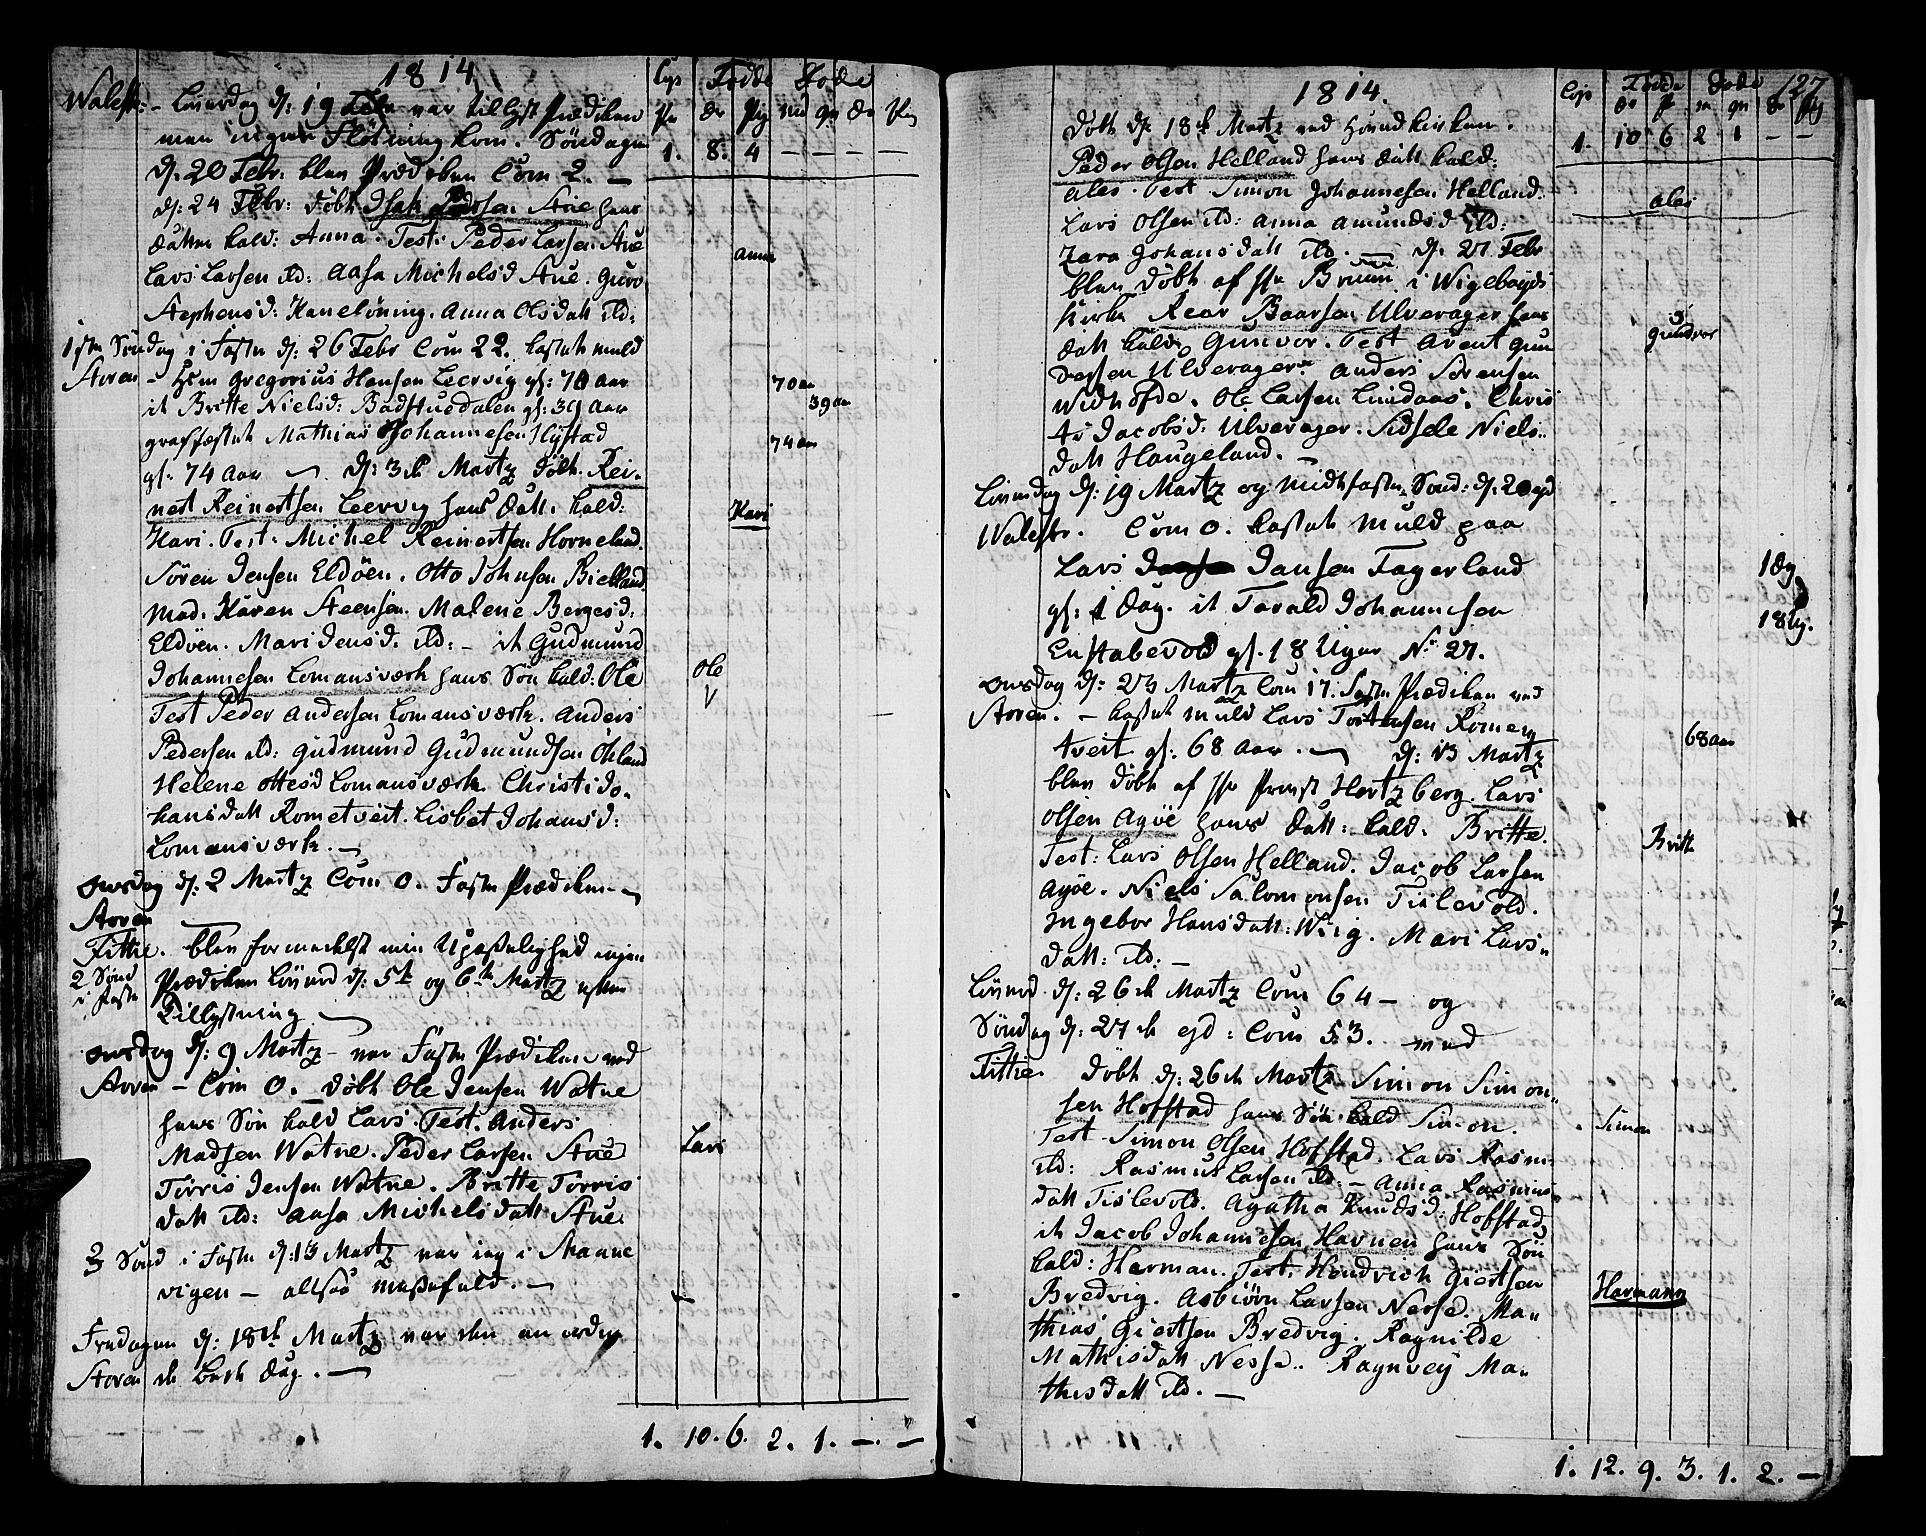 1814
Cop Födde Döde
Pr Dr Pig md qv Dr Pig
1. 8. 4 – – – –
Löverdag d: 19 Febr var tillyst Prædiken
men ingen Kom. Söndagen
d: 20 Febr. blev Prædiken Com 2. –
d: 24 Febr: döbt Isak Larsen Aue hans
datter kald: Anna. Test: Peder Larsen Aue
Anna
Lars Larsen ibd: Aasa Michelsd Aue. Guro
Stephensd: Kaneløning. Anna Olsdatt ibd:
1ste Söndag i Faste d: 26 Febr Com 22. kastet muld
Storen – Hem Gregorius Hansen Leervig gl: 70 aar
70 aar
it Britte Nielsd: Badstuedalen gl: 39 aar
39 aar
graffæstet Mathias Johannesen Hystad
74 aar
gl: 74 aar – d: 3de Martz döbt. Rei-
nert Reinertsen Leervig hans datt. kald:
Kari
Kari. Test: Michel Reinertsen Horneland.
Sören Jensen Eldöen. Otto Johnsen Bielland
Mad. Karen Steensen. Malene Bergesd:
Eldöen. Mari Jensd. ibd: – it Gudmund
Johannesen Lomansværk hans Sön kald: Ole
Ole
Test Peder Andersen Lomansværk. Anders
Pedersen ibd: Gudmund Gudmundsen Ökland
Helene Ottesd Lomansværk. Christi Jo-
hansdatt Rometveit. Lisbet Johansd:
Lomansværk. –
Onsdag d: 2 Martz Com 0. Faste Prædiken –
Storen
Fittie. blev formedelst min Upaselighed ingen
2 Sönd Prædiken Löverd d: 5te og 6te Martz efter
i Faste Tillysning
Onsdag d: 9 Martz – var Faste Prædiken ved
Storen – Com 0. – döbt Ole Jensen Watne
hans Sön kald Lars. Test. Anders
Lars
Madsen Watne. Peder Larsen Aue
Torris Jensen Watne. Britte Torris
datt ibd: Aasa Michelsdatt Aue.
3 Sönd i Faste d: 13 Martz var ieg i Manne
vigen – altsaa messefald. –
Fredagen d: 18de Martz var den an ordne
Storen de Beede dag. –
1. 10. 6. 2. 1. –. –
1814. 127
Cop Födde Döde
1. 10 6 2 1 – –
Döbt d: 18de Martz ved
Peder Olsen Helland hans datt kald:
Ales. Test Simon Johannesen Helland.
Ales
Lars Olsen ibd: Anna Amundsd ibd:
Zara Johansdatt ibd. – d: 27 Febr
blev döbt af Hr Bruun i Wigebøyds
Kirke Rear Baarsen Ulverager hans
datt kald: Gunvor. Test Avent Gun
Gunvor
dersen Ulverager. Anders Sörensen
Widhofde. Ole Larsen Lindaas. Chris
ti Jacobsd: Ulverager. Sidsele Niels-
datt Haugeland. –
Löverdag d: 19 Martz og Midtfaste Sönd: d: 20 ejd
Walestr. Com 0. kastet muld paa
Lars Jansen Fagerland
1 dg
gl: 1 dag. it Tarald Johannesen
18 Ug.
Enstabevold gl. 18 Uger No 27.
Onsdag d: 23 Martz Com 17. Faste Prædiken ved
Storen. – kastet muld Lars Tostensen Romem
68 aar
tveit gl: 68 aar. – d: 13 Martz
blev döbt af Hr Provst Hertzberg. Lars
Olsen Agöe hans datt: kald: Britte.
Britte
Test: Lars Olsen Helland. Jacob Larsen
Agöe. Niels Salomonsen Tislevold.
Ingebor Hansdatt: Wiig. Mari Lars-
datt: ibd: –
Löverd d: 26de Martz Com 64 – og
Söndag d: 27de ejd: Com 53. – ved
Fittie. Döbt d: 26de Martz Simon Simon-
sen Hofstad hans Sön kald Simon.
Simon
Test – Simon Olsen Hofstad. Lars Rasm-
ibd: Rasmus Larsen ibd: – Anna Rasmus-
datt Tislevold. Agatha Knudsd: Hofstad
it Jacob Johannesen Havnen hans Sön
kald: Harman. Test: Hendrich Giertsen
Harmann
Bredvig. Asbiörn Larsen Nesse. Ma-
thias Giertsen Bredvig. Ragnilde
Mathisdatt Nesse. Ragnvey Ma-
thisdatt ibd. –
1. 12. 9. 3. 1. 2. –